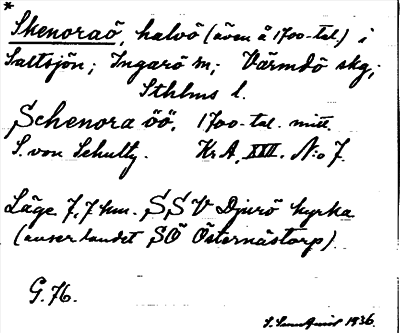 *
Skenoraö, halvö (även å 1700-tal) i
Saltsjön; Ingarö sn; Värmdö skg;
Sthlms l.
Schenora öö. 1700-tal. mitt.
S. von Schultz. Kr A, XXII. N:o 7.
Läge 7,7 km. SSV Djurö kyrka
(auser landet SÖ Östernästorp)
G. 76.
1936.